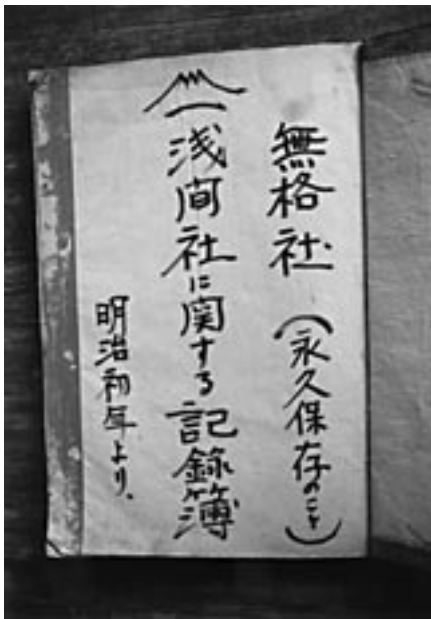 無格社 (永久保存のこと)
一浅间社に関する記録簿
明治初年より、